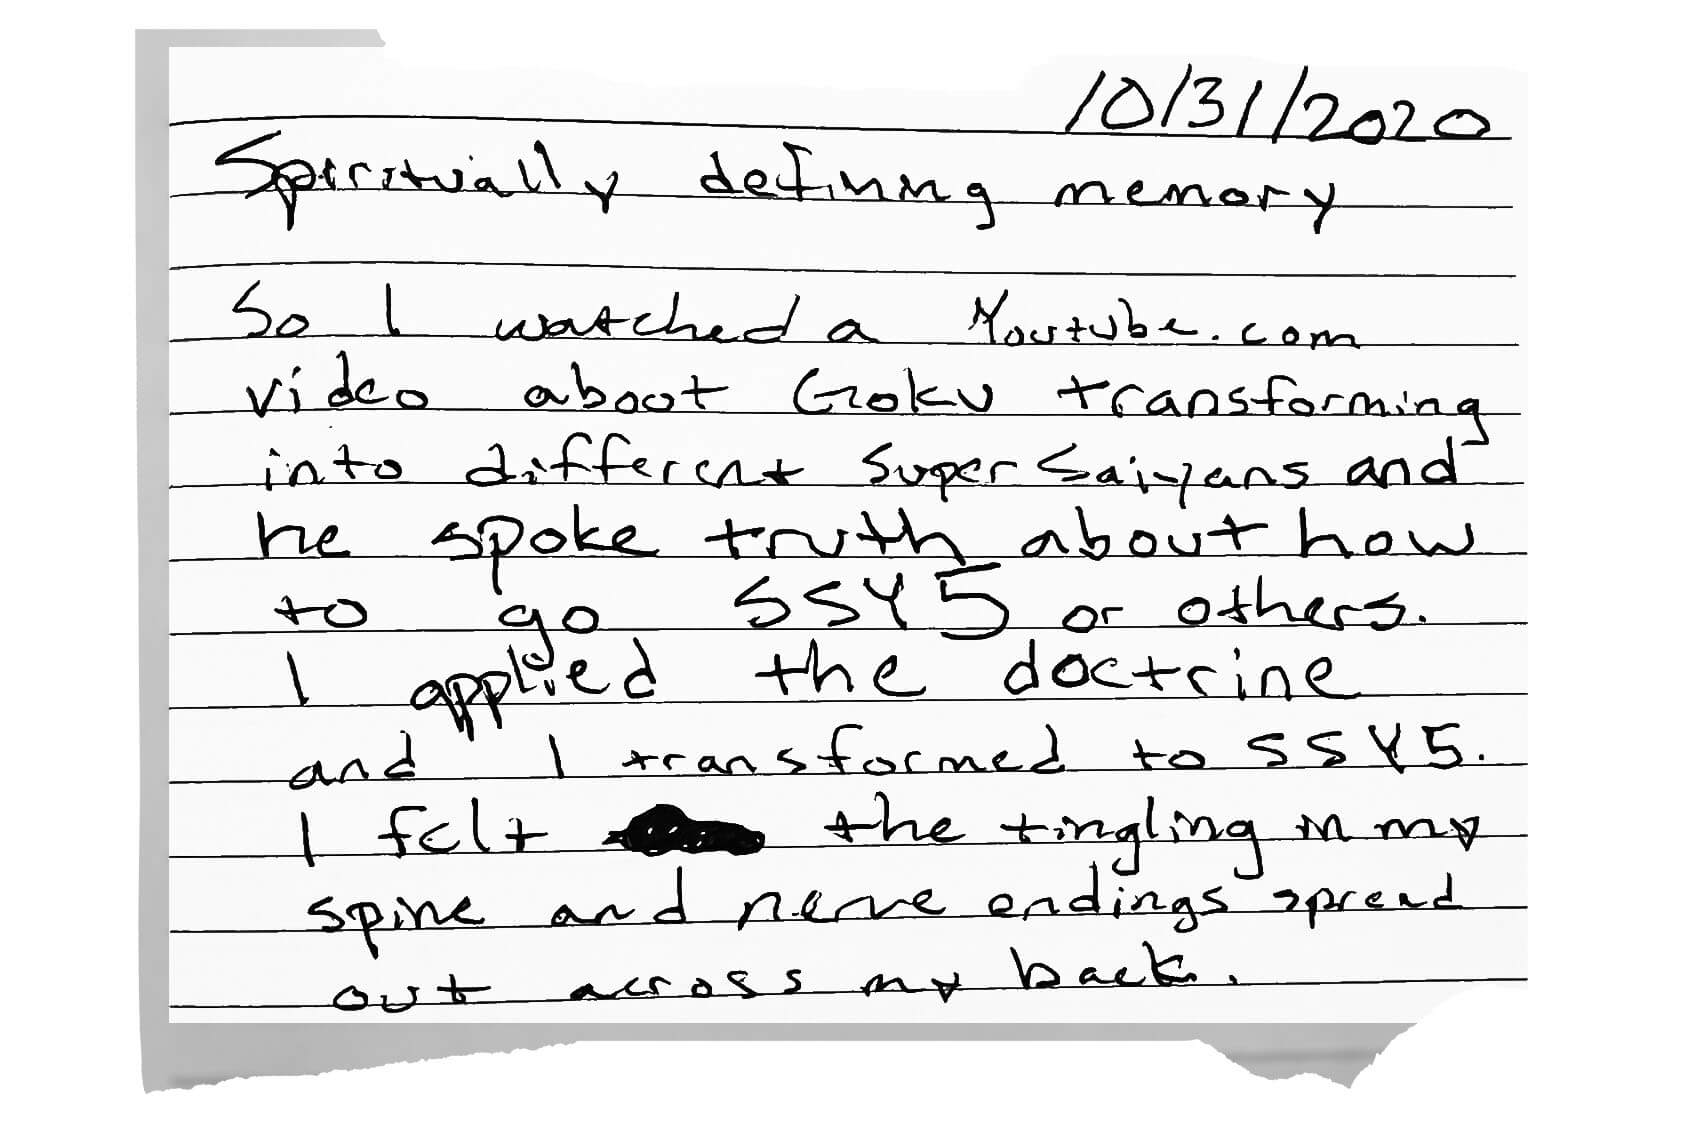 10/31/2020
Spiritually defining memory
So I watched a Youtube.com
video about Goku transforming
into different Super Saiyans and
he spoke truth about how
to go SSY5 or others.
I applied the doctrine
and I transformed to SSY5.
I felt the tingling in my
spine and nerve endings spread
out across my back.